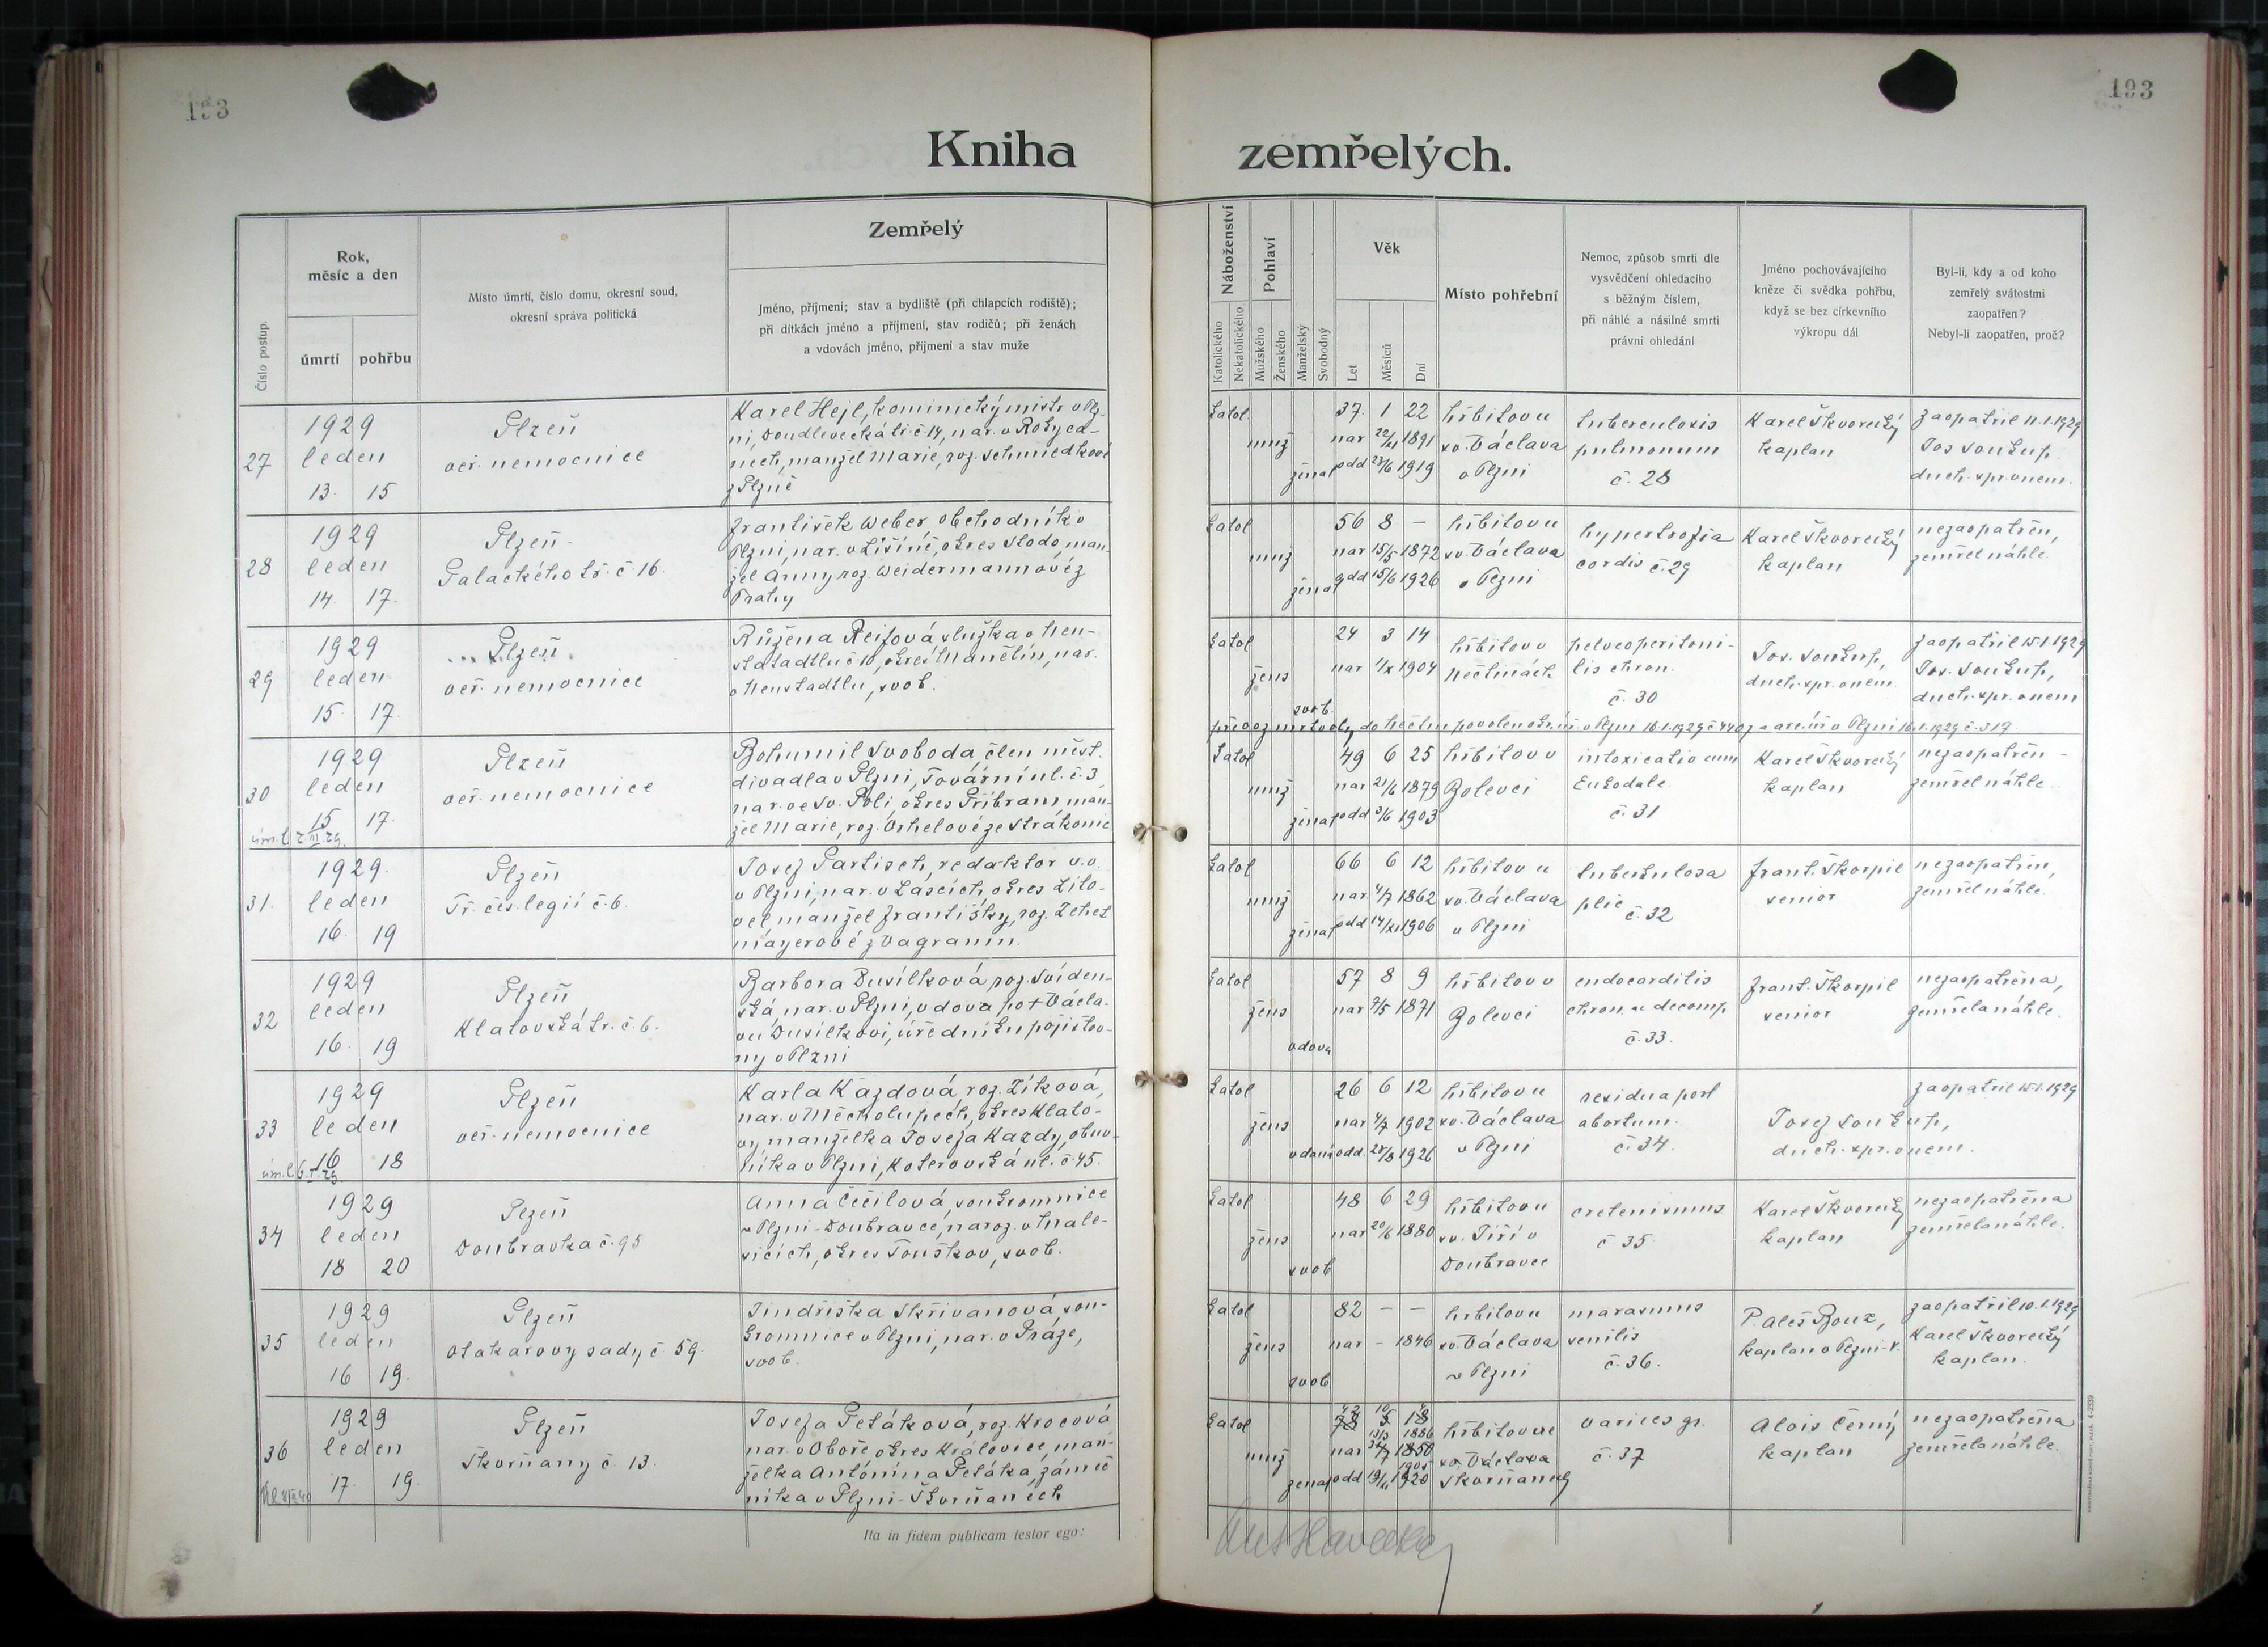 193
193
Kniha
zemřelých.
Číslo postup.
Rok,
měsíc a den
úmrtí
pohřbu
Místo úmrtí, číslo domu, okresní soud,
okresní správa politická
Zemřelý
Jméno, příjmení; stav a bydliště (při chlapcích rodiště);
při dítkách jméno a příjmení, stav rodičů; při ženách
a vdovách jméno, příjmení a stav muže
Náboženství
Katolického
Nekatolického
Pohlaví
Mužského
Ženského
Manželský
Svobodný
Věk
Let
Měsíců
Dní
Místo pohřební
Nemoc, způsob smrti dle
vysvědčení ohledacího
s běžným číslem,
při náhlé a násilné smrti
právní ohledání
Jméno pochovávajícího
kněze či svědka pohřbu,
když se bez církevního
výkropu dál
Byl-li, kdy a od koho
zemřelý svátostmi
zaopatřen?
Nebyl-li zaopatřen, proč?
27
1929
leden
13. 15
Plzeň
veř. nemocnice
Karel Hejl, kominický mistr v Plz-
ni, Doudlevecká tř. č. 14, nar. v Rokyca-
nech, manžel Marie, roz. Schmiedtkové
z Plzně
katol
muž
ženat
37 1 22
nar 22/XI 1891
odd 23/6 1919
hřbitov u
sv. Václava
v Plzni
tuberculosis
pulmonum
č. 28
Karel Škvorecký
kaplan
zaopatřil 11.1.1929
Jos Soukup
duch. spr. v nem.
28
1929
leden
14. 17.
Plzeň
Palackého tř. č. 16.
František Weber, obchodník v
Plzni, nar. v Lišíně, okres Stod, man-
žel Anny roz. Weidermannové z
Prahy
katol
muž
ženat
56 8 –
nar 15/5 1872
odd 15/6 1926
hřbitov u
sv. Václava
v Plzni
hypertrofia
cordis č. 29
Karel Škvorecký
kaplan
nezaopatřen,
zemřel náhle.
29
1929
leden
15. 17.
Plzeň
veř. nemocnice
Růžena Reifová služka v Neu-
statadtlu č 10, okres Manětín, nar.
v Neustadtlu, svob.
katol
žens
svob.
24 3 14
nar 1/X 1904
hřbitov v
Nečtinách
pelveoperitoni-
tis chron.
č. 30
Jos. Soukup,
duch. spr. v nem.
zaopatřil 15.1.1929
Jos. Soukup,
duch. spr. v nem
převoz mrtvoly do Nečtin povolen
v Plzni 16.1.1929 č. 317.
30
1929
leden
15 17.
Plzeň
veř. nemocnice
Bohumil Svoboda, člen měst.
divadla v Plzni, Tovární ul. č. 3,
nar. ve Sv. Poli okres Příbram, man-
žel Marie, roz. Orhelové ze Strakonic
katol
muž
ženat
49 6 25
nar 21/6 1879
odd 3/6 1903
hřbitov v
Bolevci
intoxicatio cum
Eukodale.
č. 31
Karel Škvorecký
kaplan
nezaopatřen –
zemřel náhle.
31.
1929.
leden
16. 19
Plzeň
Tř. čes. legií č. 6.
Josef Partisch, redaktor v.v.
v Plzni, nar. v Lascích, okres Lito-
vel, manžel Františky, roz. Zehet
mayerové z Wagramm.
katol
muž
ženat
66 6 12
nar. 4/7 1862
odd 14/XI 1906
hřbitov u
sv. Václava
v Plzni
tuberkulosa
plic č. 32
Frant. Škorpil
senior
nezaopatřen,
zemřel náhle.
32
1929
leden
16. 19
Plzeň
Klatovská tř. č. 6.
Barbora Dusílková, roz. Sviden-
ská nar. v Plzni, vdova po + Václa-
vu Dusílkovi, úředníku pojišťov-
ny v Plzni
katol
žens
vdova
57 8 9
nar 7/5 1871
hřbitov v
Bolevci
endocarditis
chron. a decomp.
č. 33.
Frant. Škorpil
senior
nezaopatřena,
zemřela náhle.
33
1929
leden
16 18
Plzeň
veř. nemocnice
Karla Kazdová, roz. Zíková,
nar. v Měcholupech, okres Klato-
vy, manželka Josefa Kazdy, obuv-
níka v Plzni, Koterovská ul. č. 45.
katol
žens
vdaná
26 6 12
nar 4/7 1902
odd. 28/8 1926
hřbitov u
sv. Václava
v Plzni
residua post
abortum.
č. 34.
Josef Soukup,
duch. spr. v nem.
zaopatřil 15.1.1929
34
1929
leden
18 20
Plzeň
Doubravka č. 95
Anna Čečilová, soukromnice
v Plzni-Doubravce, naroz. v Hnale-
vicích, okres Touškov, svob.
katol
žens
svob
48 6 29
nar 20/6 1880
hřbitov u
sv. Jiří v
Doubravce
cretenismus
č. 35
Karel Škvorecký
kaplan
nezaopatřena
zemřela náhle.
35
1929
leden
16 19.
Plzeň
Otakarovy sady č. 59.
Jindřiška Skřivanová, sou-
kromnice v Plzni, nar. v Praze,
svob.
katol
žens
svob
82 – –
nar – 1846
hřbitov u
sv. Václava
v Plzni
marasmus
senilis
č. 36.
P. Aleš Bouz,
kaplan v Plzni-V.
zaopatřil 10.1.1929
Karel Škvorecký
kaplan.
36
1929
leden
17. 19.
Plzeň
Škvrňany č. 13.
Josefa Petáková, roz. Krocová
nar. v Oboře okres Kralovice, man-
želka Antonína Petáka, zámeč
níka v Plzni-Škvrňanech
katol
muž
ženat
nar
1886
1850
odd
1905
1920
hřbitov ve
sv. Václava
Škvrňanech
varices gr.
č. 37
Alois Černý
kaplan
nezaopatřena
zemřela náhle.
Ita in fidem publicam testor ego: